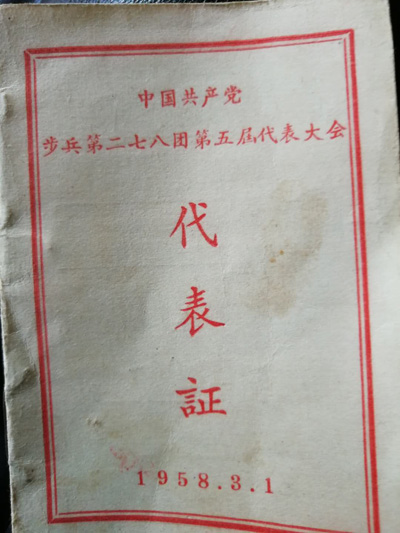 中国共产党
步兵第二七八团第五届代表大会
代
表
証
1958.3.1